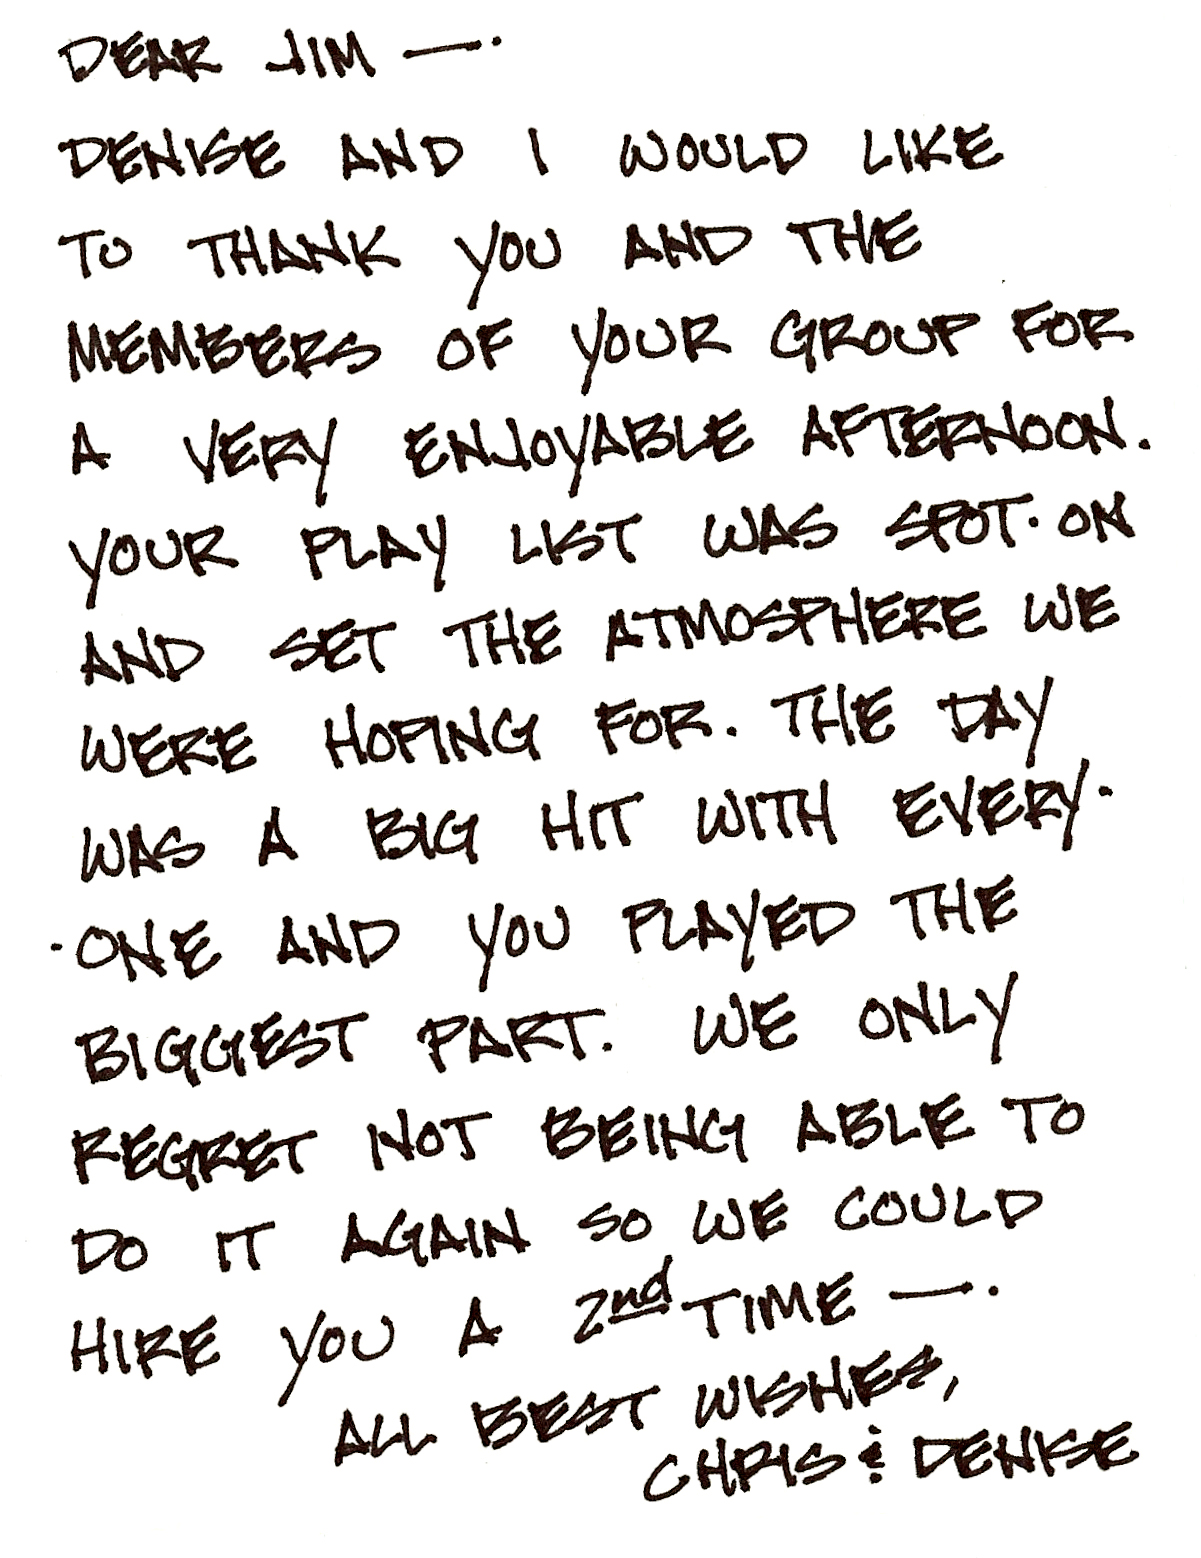 DEAR JIM —.
DENISE AND I WOULD LIKE
TO THANK YOU AND THE
MEMBERS OF YOUR GROUP FOR
A VERY ENJOYABLE AFTERNOON.
YOUR PLAY LIST WAS SPOT·ON
AND SET THE ATMOSPHERE WE
WERE HOPING FOR. THE DAY
WAS A BIG HIT WITH EVERY·
·ONE AND YOU PLAYED THE
BIGGEST PART. WE ONLY
REGRET NOT BEING ABLE TO
DO IT AGAIN SO WE COULD
HIRE YOU A 2nd TIME —.
ALL BEST WISHES,
CHRIS & DENISE